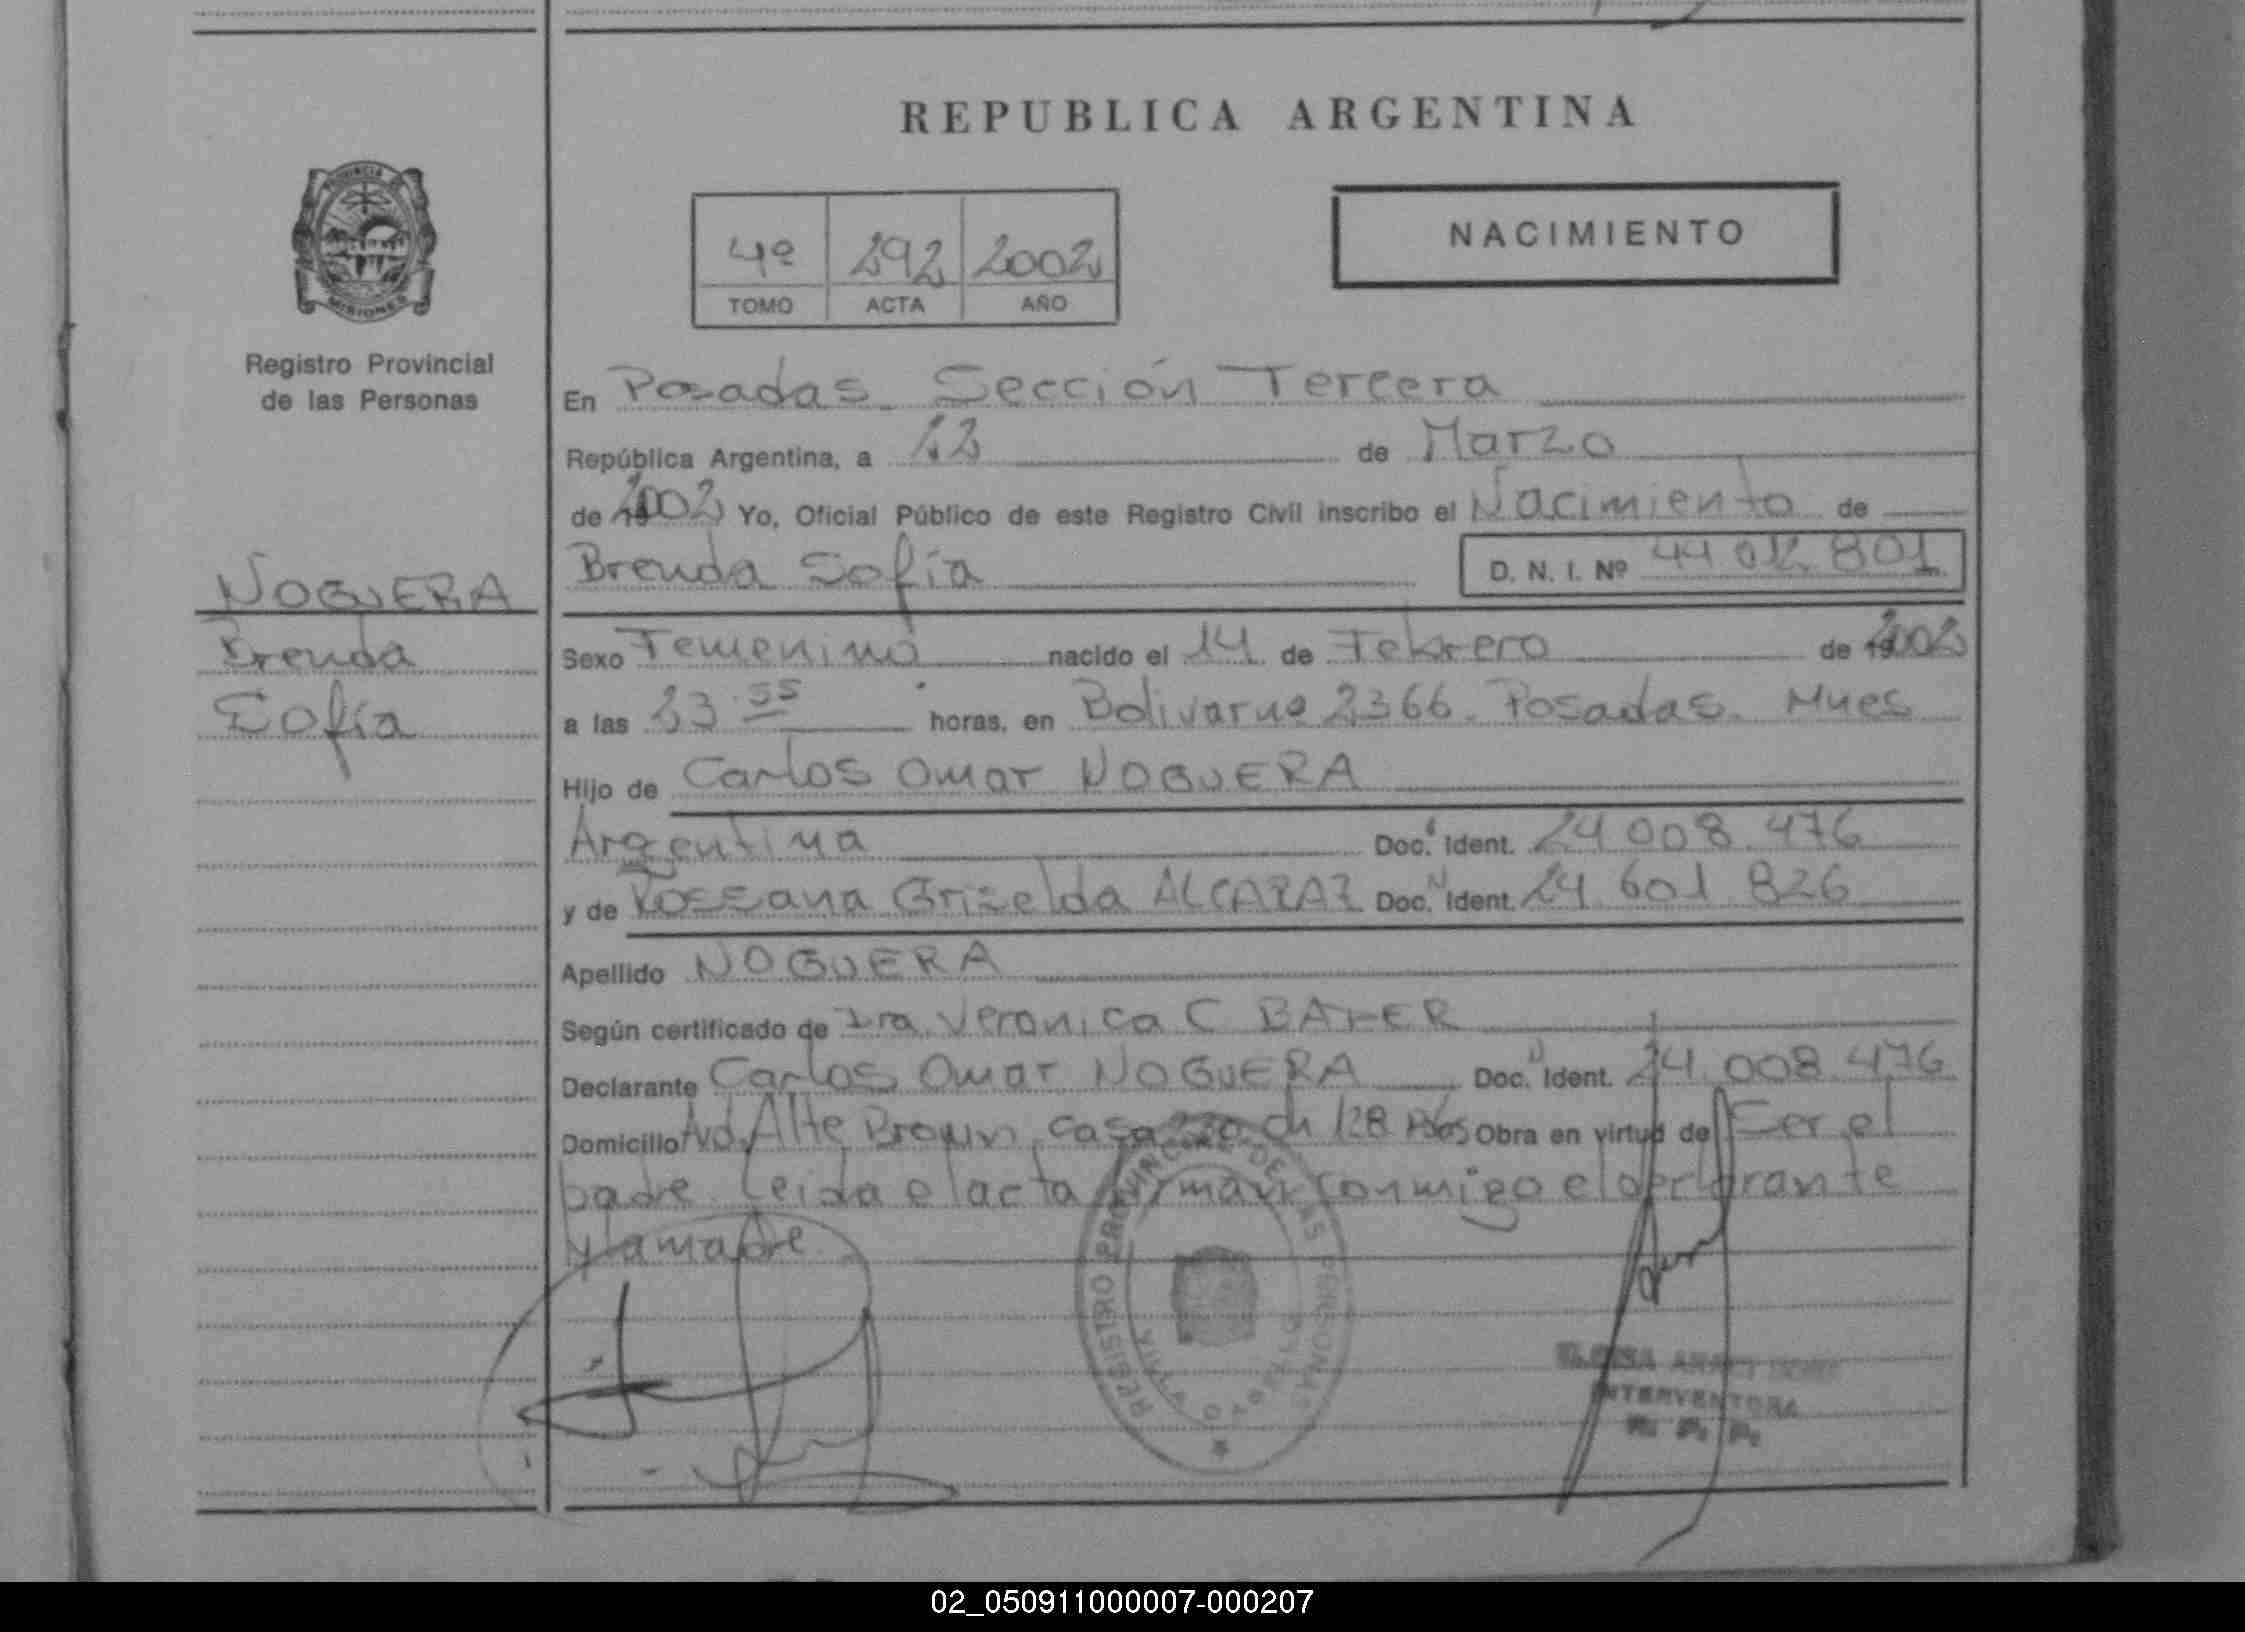 REPUBLICA ARGENTINA
PROVINCIA DE
MISIONES
Registro Provincial
de las Personas
4º 292 2002
TOMO ACTA AÑO
NACIMIENTO
En Posadas. Sección Tercera
República Argentina, a 22 de Marzo
de 2002 Yo, Oficial Público de este Registro Civil inscribo el Nacimiento de
Brenda Sofía D. N. I. Nº 44 012 801
NOGUERA
Brenda
Sofía
Sexo Femenino nacido el 14 de Febrero de 2002
a las 23.55 horas, en 2366. Posadas.
Hijo de Carlos Omar NOGUERA
Argentina Doc. Ident. 24 008 476
y de Rossana Griselda ALCARAZ Doc. Ident. 24 601 826
Apellido NOGUERA
Según certificado de Dra. Veronica C
Declarante Carlos Omar NOGUERA Doc. Ident. 24 008 476
Domicilio Avd. Alte Brown casa ch 128 Obra en virtud de Ser el
padre. Leida el acta firman conmigo el declarante
y la madre.
REGISTRO PROVINCIAL DE LAS PERSONAS
INTERVENTORA
R. P. P.
02_050911000007-000207